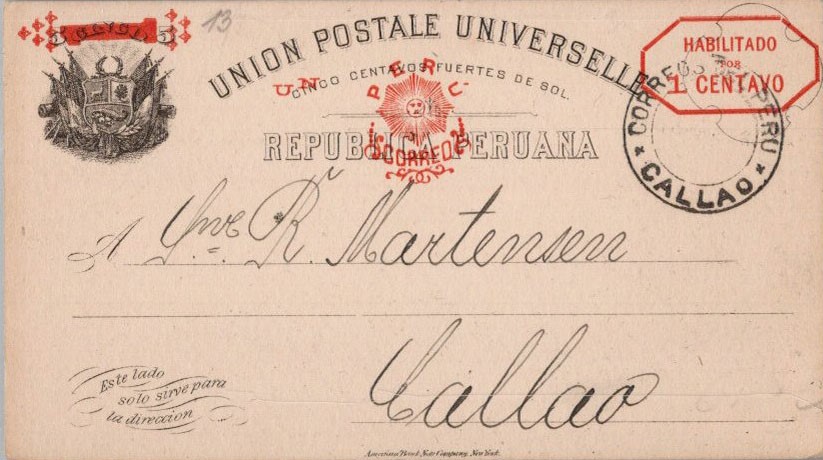 13
5 5
UNION POSTALE UNIVERSELLE
HABILITADO
POR
1 CENTAVO
UN
CINCO CENTAVOS FUERTES DE SOL.
PERU
CORREOS
REPUBLICA PERUANA
CORREOS DEL PERU
* CALLAO *
A R. Martensen
Callao
Este lado
solo sirve para
la direccion
American Bank Note Company, New York.